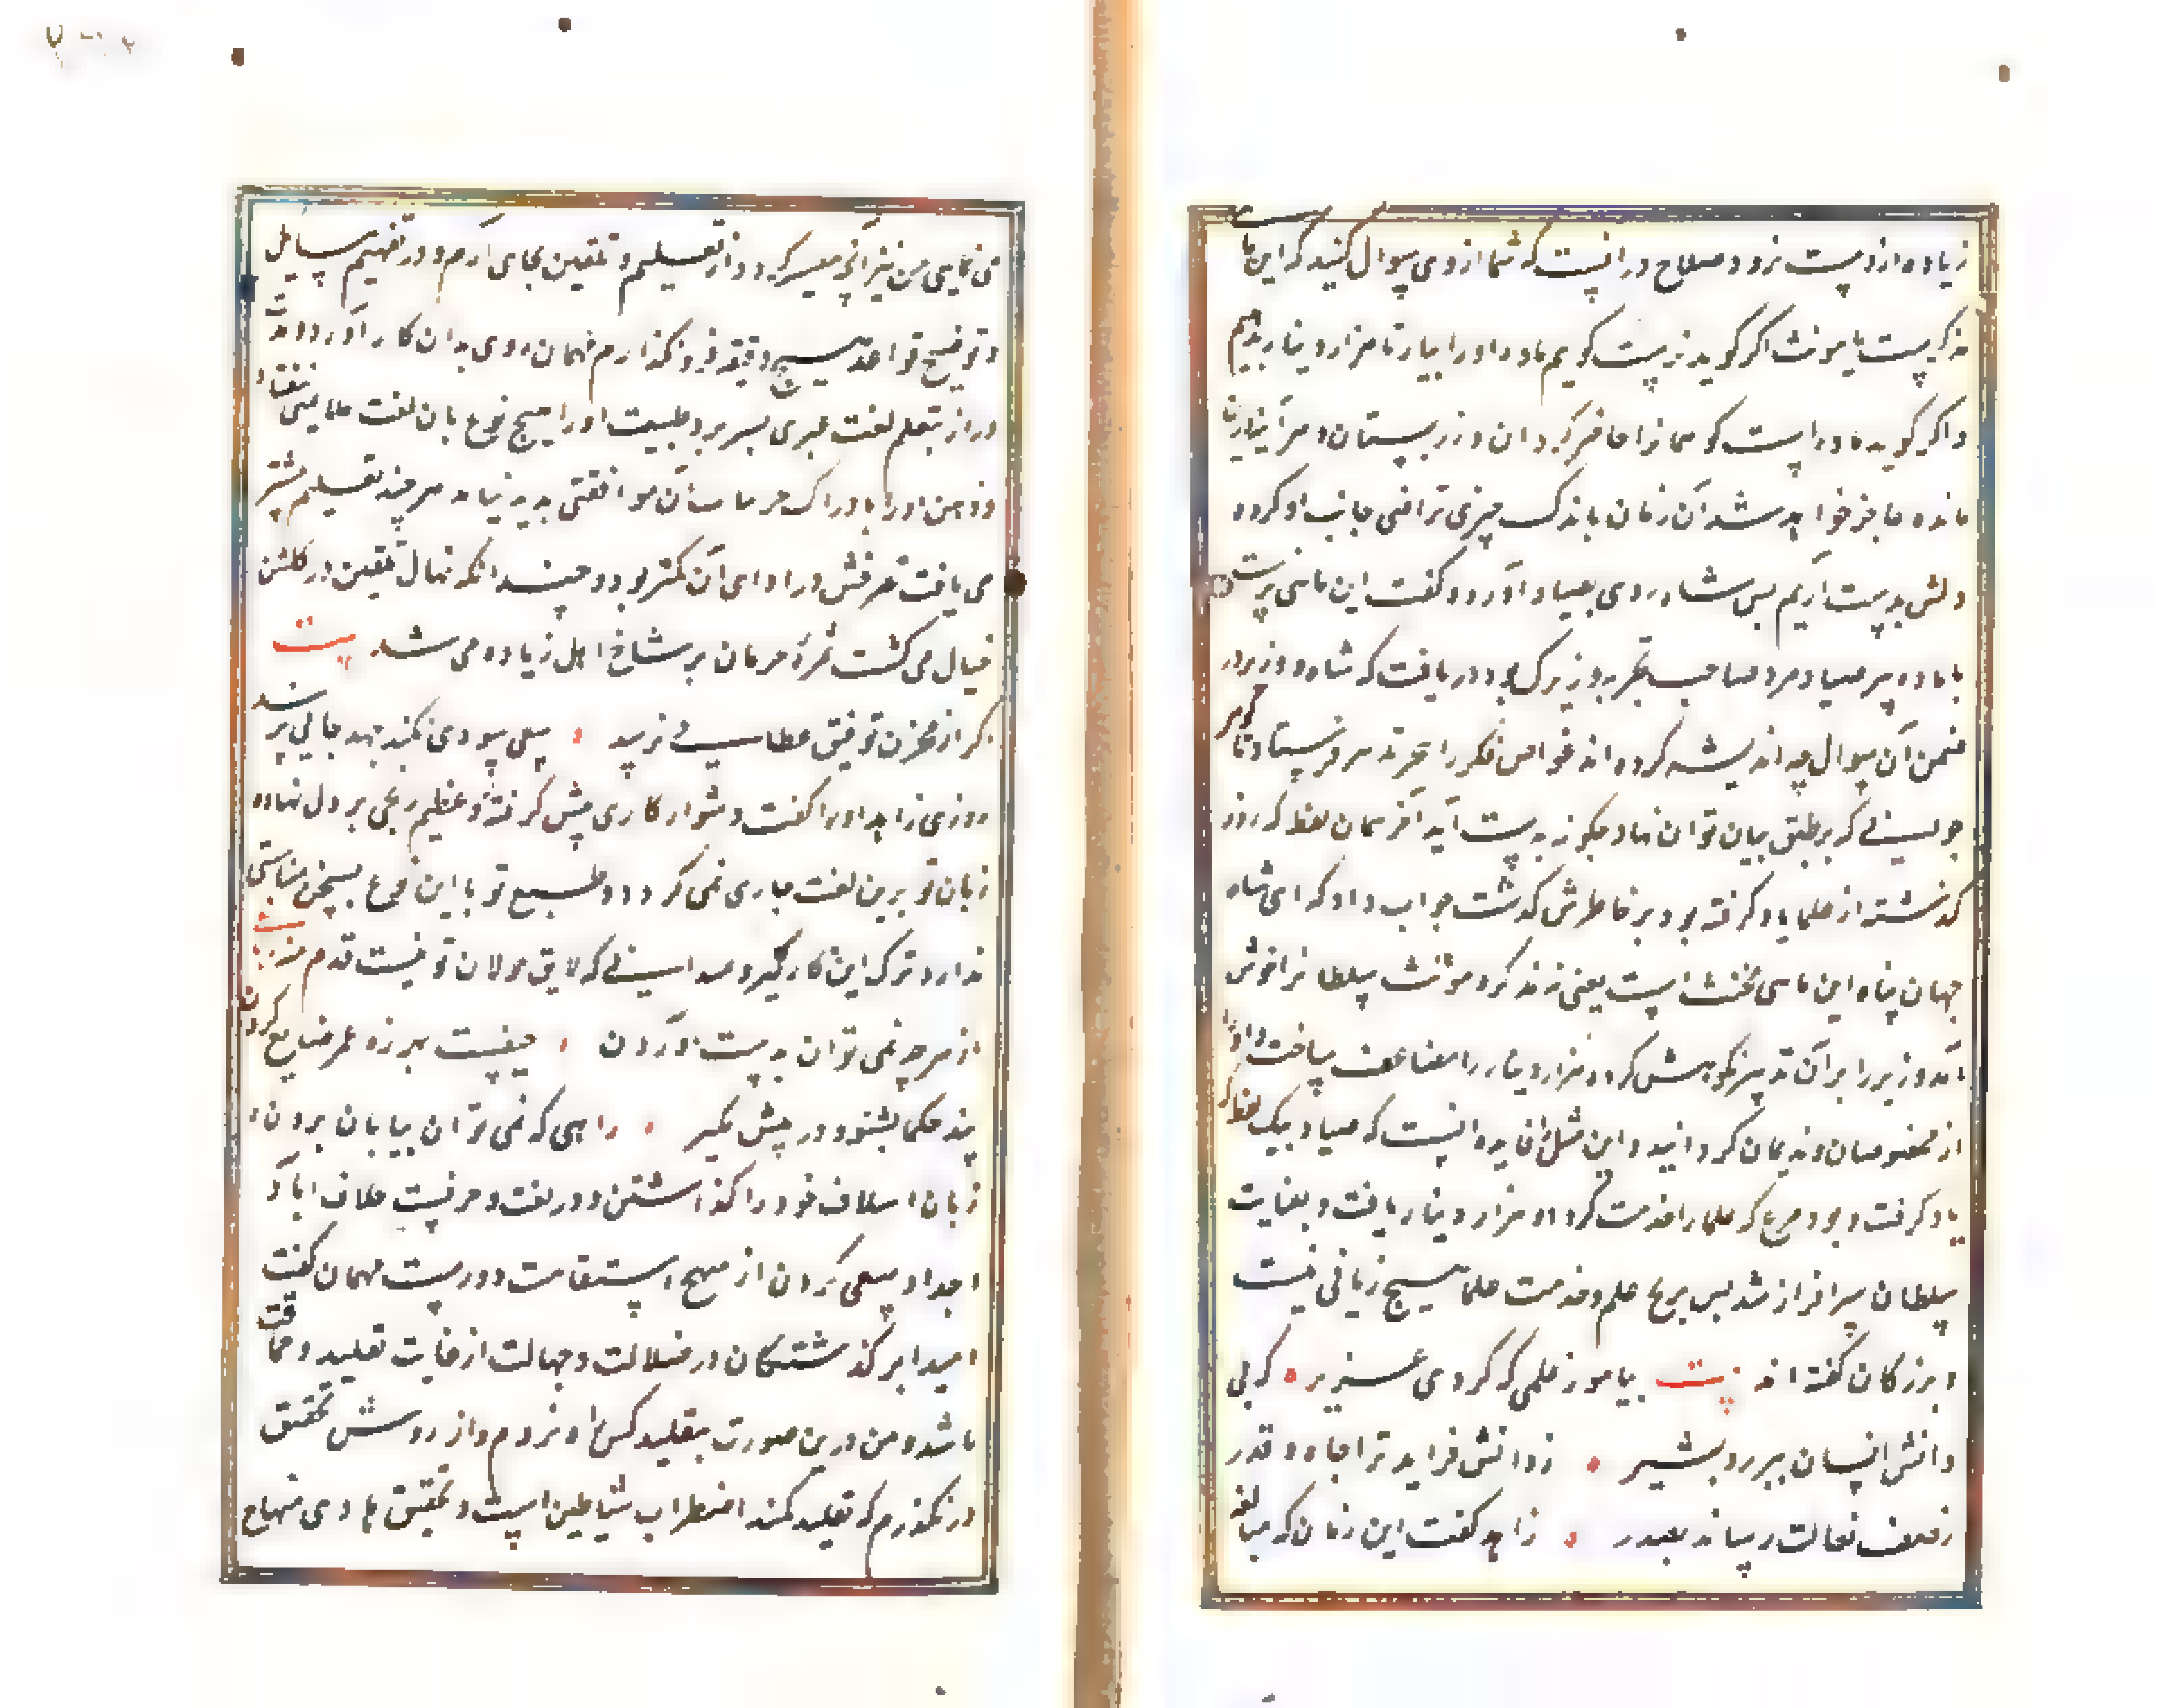 زیاده از دست نرود و صلاح در انست که شما از وی سوال کنید که این ماهی
مذکرست یا مونث اگر کوید نرست کویم ماده او را بیار تا هزار دینار بدهیم
و اکر کوید ماده است کو همانرا حاضر کردان و زر بستان و هر آینه ازین
مانده عاجز خواهد شد آن زمان باندک چیزی تراضی جانب او کرده
دلش بدست آریم پس شاه روی بصیاد آورد و کفت این ماهی نرست
یا ماده پیر صیاد مرد صاحب تجربه و زیرک بود دریافت که شاه و وزیر در
ضمن آن سوال چه اندیشه کرده اند غواص فکر را بحر تدبر فرستاد تا کوهر
جوابی که بر طبق بیان توان نهاد چکونه بدست آید آخر همان لفظ که روز
کذشته از علما یاد کرفته بود بر خاطرش کذشت جواب داد که ای شاه
جهان پناه این ماهی مخنث است یعنی نه مذکر و نه مونث سلطانرا خوش
آمد وزیر را بر آن تدبیر نکوهش کرد و هزار دینار را مضاعف ساخت و او را
از مخصوصان و ندیمان کردانید و این مثل را فایده انست که صیاد بیک لفظ که
یاد کرفت و دو مرغ که علما را خدمت کرد دو هزار دینار یافت و بعنایت
سلطان سرافراز شد پس برنج علم و خدمت علما هیچ زیانی نیست
و بزرکان کفته اند بیت بیاموز علمی که کردی عزیز که بی
دانش انسان نیرزد بشیر ز دانش فزاید ترا جاه و قدر
ز صف نعالت رساند بصدر زاهد کفت این زمان که مبالغه
می نمایی من نیز آنچه میسر کردد از تعلیم و تلقین بجای آرم و در تفهیم مسایل
و توضیح قواعد هیچ دقیقه فرو نکذارم مهمان روی بدان کار آورد و مدت
دراز بتعلم لغت عبری بسر برد طبیعت او را هیچ نوع بان لغت ملایمتی نیفتاد
و ذهن او را بادراک کلمات آن موافقتی پدید نیامد هر چند تعلیم بیشتر
می یافت تصرفش در ادای آن کمتر بود و چندانکه نهال تلقین در کلشن
خیال می کشت ثمرهٔ حرمان بر شاخ امل زیاده می شد بیت
کر از مخزن توفیق عطایی نرسد سعی سودی نکند جهد بجایی نرسد
روزی زاهد او را کفت دشوار کاری پیش کرفتهٔ و عظیم رنجی بر دل نهاده
زبان تو برین لغت جاری نمی کردد و طبع تو با این نوع سخن مناسبتی
ندارد ترک این کار کیر و میدانی که لایق جولان تو نیست قدم منه
از هر چه نمی توان بدست آوردن حیفست بهرزه عمر ضایع کردن
پند حکما بشنو و در پیش مکیر راهی که نمی توان بپایان بردن
زبان اسلاف خود را کذاشتن و در لغت و حرفت خلاف آبا و
اجداد سعی کردن از منهج استقامت دورست مهمان کفت
اقتدا بر کذشتکان در ضلالت و جهالت از غایت تقلید و حماقت
باشد و من درین صورت بتقلید کس راه نروم و از روش تحقیق
در نکذرم که تقلید کمند اضطراب شیاطین است و تحقیق هادی منهاج